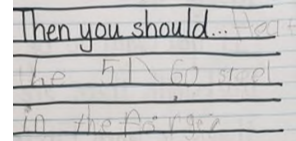 Then you should... Heat
the 5160 steel
in the forge